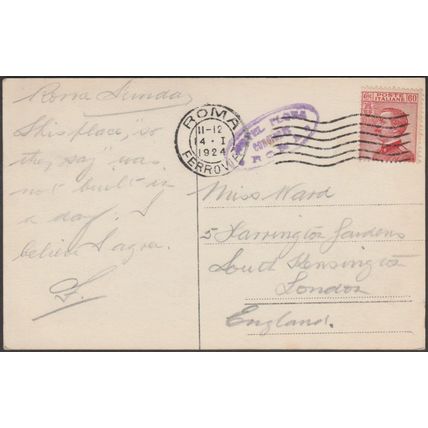 Roma Sunday
This place, "so
they say" was
not built in
a day. I
believe I agree.
F.
ROMA
11-12
4 · I
1924
FERROVIA
HOTEL FLORA
ROMA
POSTE ITALIANE
60
Miss Ward
5 Harrington Gardens
South Kensington
London
England.